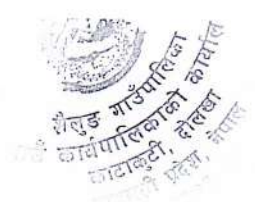 शैलुङ गाउँपालिका
कार्यपालिकाको कार्याल
काटाकुटी, दोलखा
प्रदेश, नेपाल